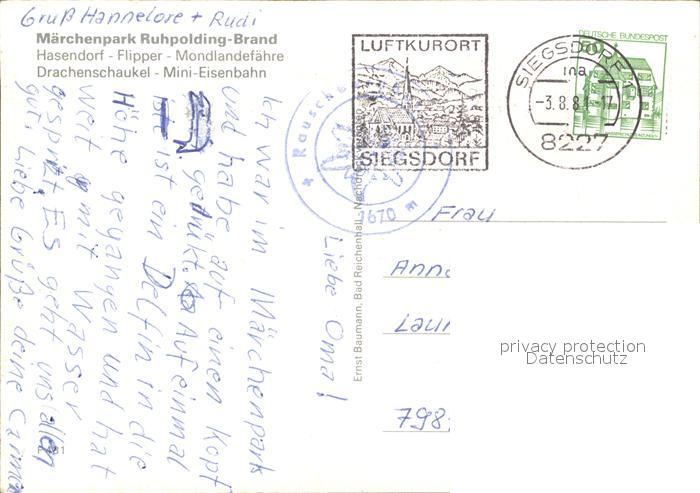 Gruß Hannelore + Rudi
Märchenpark Ruhpolding-Brand
Hasendorf - Flipper - Mondlandefähre
Drachenschaukel - Mini-Eisenbahn
Liebe Oma!
Ich war im Märchenpark
und habe auf einen Kopf
gedrükt. Auf einmal
ist ein Delfin in die
Höhe gegangen und hat
weit mit Wasser
gesprizt Es geht uns allen
gut. Liebe Grüße deine
Ernst Baumann, Bad Reichenhall
LUFTKURORT
SIEGSDORF
SIEGSDORF
1na
-3.8.8
17
8227
DEUTSCHE BUNDESPOST
Rausche
1670
Frau
Ann
Lau
798
privacy protection
Datenschutz